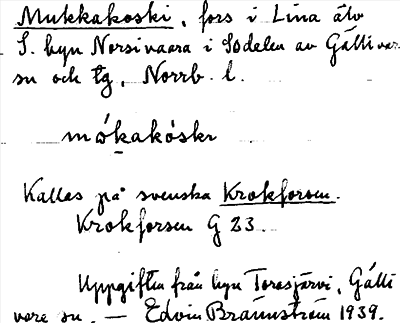 Mukkakoski, fors i Lina älv
S. byn Norsivaara i Södelen av Gällivare
sn och tg, Norrb. l.
mókakóskı
Kallas på svenska Krokforsen.
Krokforsen G 23.
Uppgiften från byn Toresjärvi, Gälli
vare sn. — Edvin Brännström 1939.